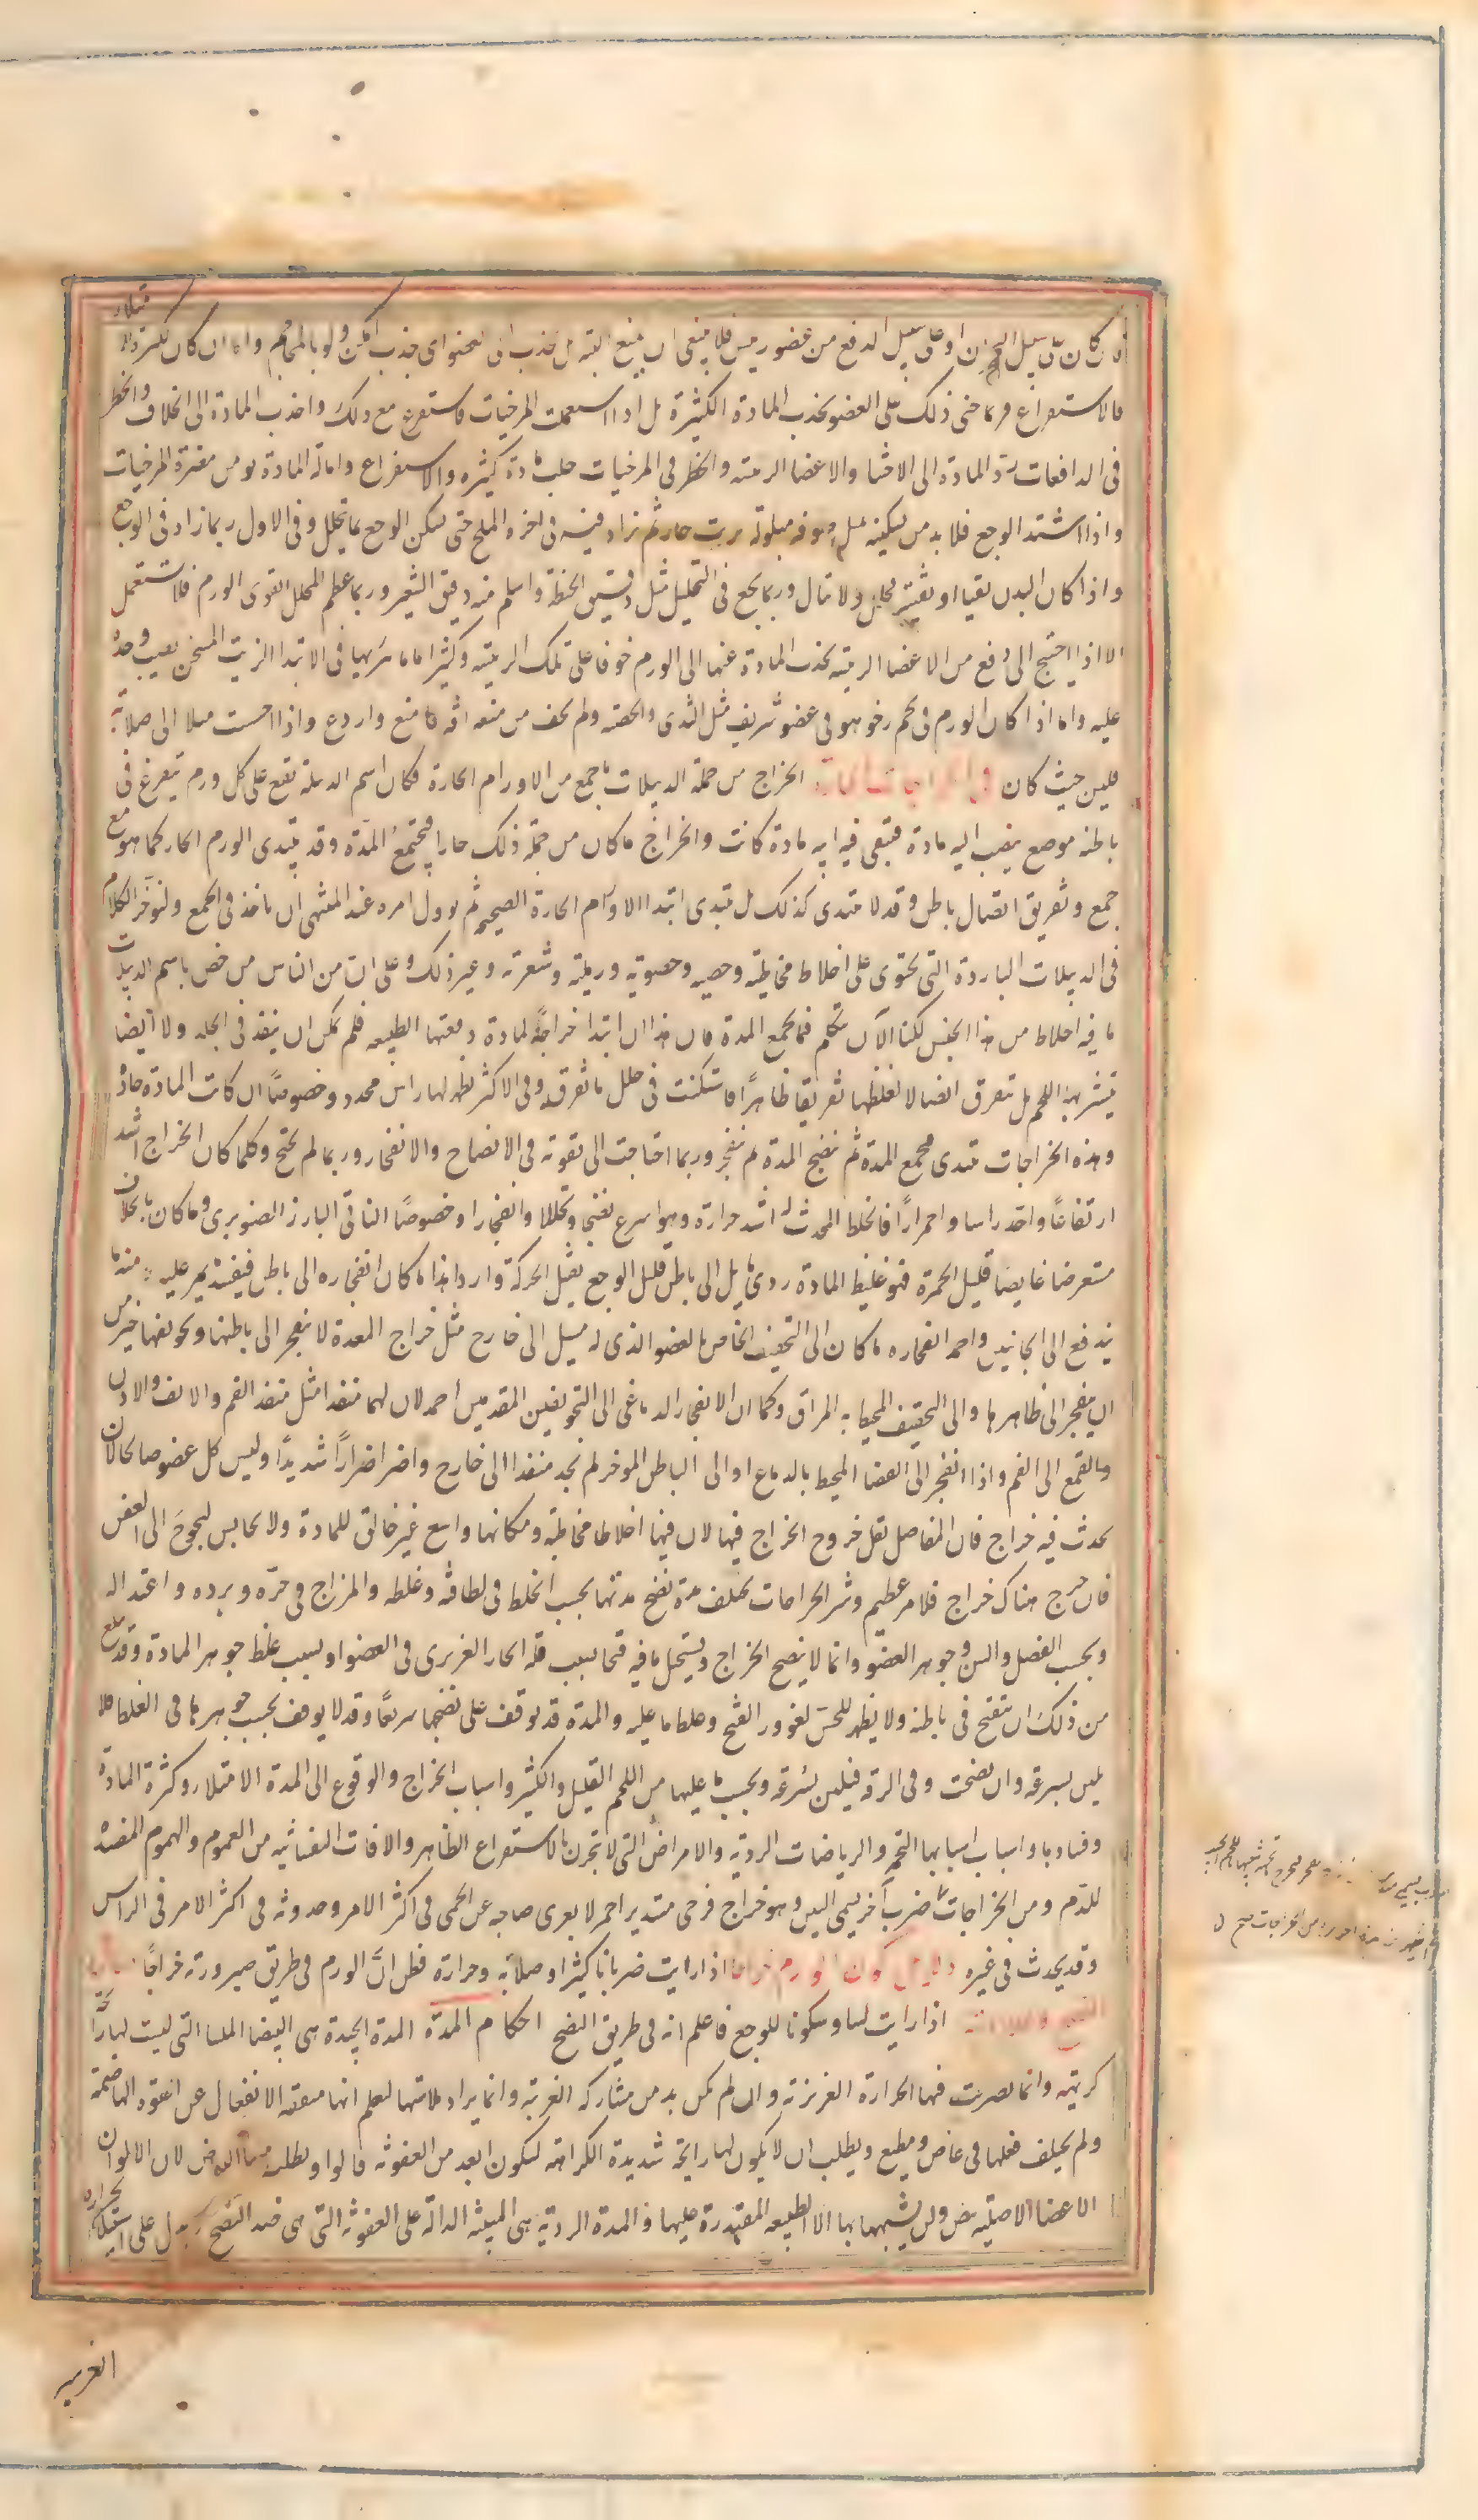 كان على سبيل البحران او على سبيل الدفع من عضو رييس فلا ينبغى ان يمنع البته بل يجذب الى العضو اى جذب امكن ولو بالمحاجم واما ان كان لكثرة
فالاستفراع فربما جنى ذلك على العضو بجذب المادة الكثيرة بل اذا استعملت المرخيات فاستفرع مع ذلك واجذب المادة الى الخلاف والخطر
فى الدافعات رد المادة الى الاحشا والاعضا الريسه والخطر فى المرخيات جلب مادة كثيره والاستفراع وامالة المادة يومن مضرة المرخيات
واذا اشتد الوجع فلا بد من تسكينه بمثل صوفه مبلولة بزيت حار ثم يزاد فيه فى اخره الملح حتى يسكن الوجع بما يحلل وفى الاول ربما زاد فى الوجع
واذا كان البدن نقيا او نقيته فحلل ولا تبال وربما نجع فى التحليل مثل دقيق الحنطة واسلم منه دقيق الشعير وربما عظم المحلل القوى الورم فلا تستعمل
الا اذا احتيج الى دفع من الاعضا الريسه بجذب المادة عنها الى الورم خوفا على تلك الريسه وكثيرا ما ما يبريها فى الابتدا الزيت المسخن يصب وحده
عليه واما اذا كان الورم فى لحم رخو هو فى عضو شريف مثل الثدى والخصيه ولم يخف من منعه افه فامنع واردع واذا احست ميلا الى صلابة
فلين حيث كان فى الخراجات الحارة الخراج من جملة الدبيلات ما جمع من الاورام الحارة فكان اسم الدبيلة تقع على كل ورم يتفرغ فى
باطنه موضع ينصب اليه مادة فتبقى فيه ايه مادة كانت والخراج ما كان من جملة ذلك حارا فيجتمع المدة وقد يبتدى الورم الحار كما هو مع
جمع وتفريق اتصال باطن وقد لا يبتدى كذلك بل يبتدى ابتدا الاورام الحارة الصحيحه ثم يوول امره عند المنتهى ان ياخذ فى الجمع ولنوخر الكلام
فى الدبيلات الباردة التى تحتوى على اخلاط مخاطيه وجصيه وحصويه ورمليه وشعريه وغير ذلك وعلى ان من الناس من خص باسم الدبيلات
ما فيه اخلاط من هذا الجنس لكنا الآن نتكلم فيما يجمع المدة فان هذا ان ابتدا خراجا لمادة دفعتها الطبيعه فلم يمكن ان ينفذ فى الجلد ولا ايضا
يتشر بها اللحم بل تفرق اتصالا لغلظها تفريقا ظاهرًا فاستكنت فى خلل ما تفرق وفى الاكثر يظهر لها راس محدد وخصوصًا ان كانت المادة حادة
وهذه الخراجات تبتدى فجمع المدة ثم ينضج المدة ثم ينفجر وربما احتاجت الى تقوية فى الانضاج والانفجار وربما لم تحتج وكلما كان الخراج اشد
ارتفاعًا واحد راسا واحمرارًا فالخلط المحدث له اشد حرارة وهو اسرع نضجا وتحللا وانفجارا وخصوصًا الناتى البارز الصنوبرى وما كان بخلاف
مستعرضا غايصا قليل الحمرة فهو غليظ المادة ردى مايل الى باطن قليل الوجع ثقيل الحركة واردا هذا ما كان انفجاره الى باطن فيفسد ما يمر عليه ومنه ما
يندفع الى الجانبين واحمد انفجاره ما كان الى التجويف الخاص بالعضو الذى له مسيل الى خارج مثل خراج المعدة لان ينفجر الى باطنها وتجويفها خير من
ان ينفجر الى ظاهرها والى التجويف المحيط به المراق وكما ان الانفجار الدماغى الى التجويفين المقدمين احمد لان لهما منفذا مثل منفذ الفم والانف والاذن
والقمع الى الفم واذا انفجر الى الفضا المحيط بالدماغ او الى الباطن الموخر لم تجد منفذا الى خارج واضر اضرارًا شديدًا وليس كل عضو صالحا لان
يحدث فيه خراج فان المفاصل تقل خروج الخراج فيها لان فيها اخلاطا مخاطيه ومكانها واسع غير خانق للمادة ولا حابس ليحوج الى العفن
فان خرج هناك خراج فلامر عظيم وشر الخراجات تختلف مدة نضج مدتها بحسب الخلط فى لطافته وغلظه والمزاج فى حره وبرده واعتداله
وبحسب الفصل والسن وجوهر العضو وانما لا ينضج الخراج ويستحيل ما فيه قيحا بسبب قلة الحار الغريزى فى العضو او بسبب غلظ جوهر المادة وقد بلغ
من ذلك ان تتقيح فى باطنه ولا يظهر للحس لغور القيح وغلظ ما عليه والمدة قد توقف على نضجها سريعًا وقد لا يوقف بحسب جوهرها فى الغلظ فلا
يلين بسرعه وان نضجت وفى الرقه فيلين بسرعة وبحسب ما عليها من اللحم القليل والكثير واسباب الخراج والوقوع الى المدة الامتلا وكثرة المادة
وفسادها واسباب اسبابها التخم والرياضات الرديه والامراض التى لا تتحرن بالاستفراع الظاهر والافات النفسانيه من الغموم والهموم المفسدة
للدم ومن الخراجات ضرب آخر يسمى اليس وهو خراج قرحى مستدير احمر لا يعرى صاحبه عن الحمى فى اكثر الامر وحدوثه فى اكثر الامر فى الراس
وقد يحدث فى غيره دليل كون الورم خراجا اذا رايت ضربانا كثيرا وصلابة وحرارة فظن ان الورم فى طريق صيرورته خراجًا
النضج وعلاماته اذا رايت لينا وسكونا للوجع فاعلم انه فى طريق النضج احكام المدة المدة الجيدة هى البيضا الملسا التى ليست لها رايحة
كريهه وانما تصرفت فيها الحرارة الغريزية وان لم يكن بد من مشاركه الغريبة وانما يراد ملاستها ليعلم انها متفقه الانفعال عن القوه الهاضمه
ولم يختلف فعلها فى عاص ومطيع ويطلب ان لا يكون لها رايحه شديدة الكراهه لتكون ابعد من العفونه قالوا ويطلب فيها البياض لان الالوان
الاعضا الاصليه بيض ولن يشبهها بها الا الطبيعه المقتدرة عليها والمدة الرديه هى المنتنه الدالة على العفونه التى هى ضد النضج يدل على استيلا الحرارة
الغريبه